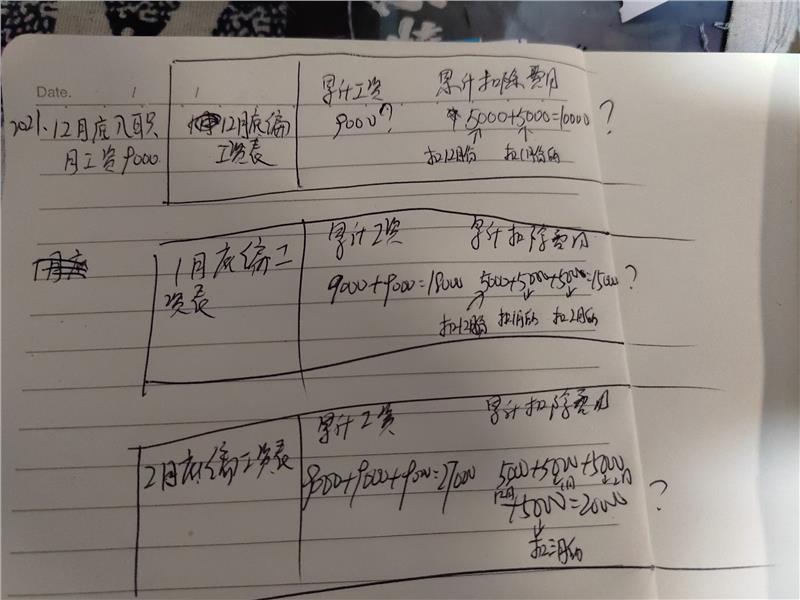 Date. / /
累计工资 累计扣除费用
2021. 12月底入职 12月底编 9000? 5000+5000=10000?
月工资9000 工资表 扣12月份 扣1月份的
累计工资 累计扣除费用
1月底编工 9000+9000=18000 5000+5000+5000=15000?
资表 扣12月份 扣1月的 扣2月的
累计工资 累计扣除费用
2月底编工资表 9000+9000+9000=27000 5000+5000+5000
12月 1月 2月
+5000=20000?
扣3月的